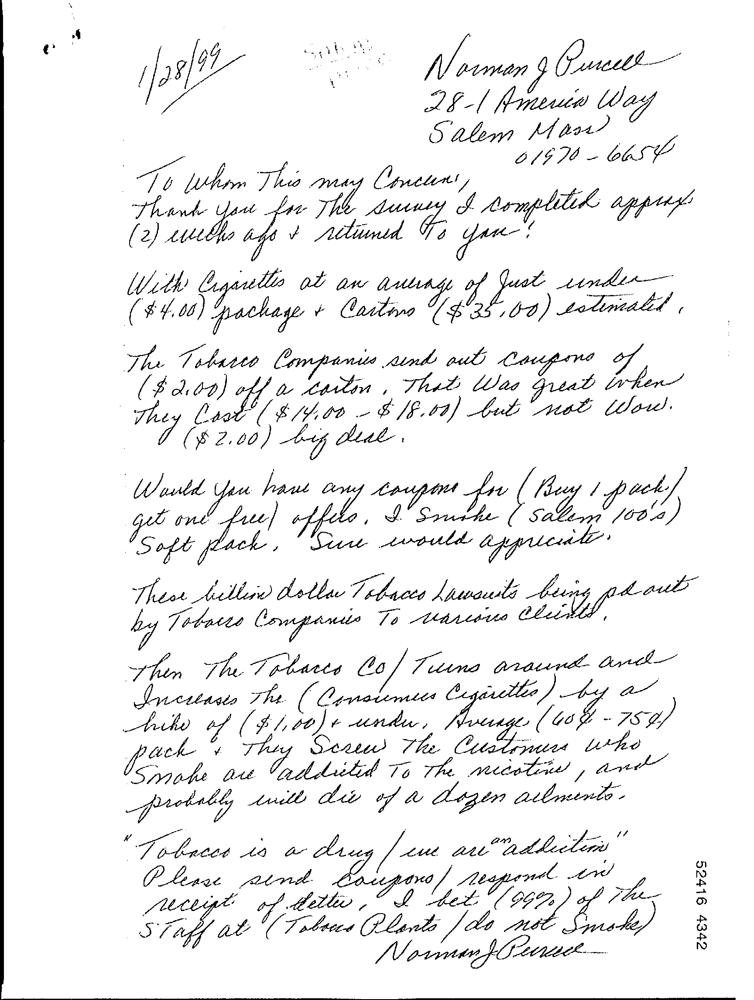 1/28/99
Norman J Purcell
28-1 America Way
Salem Mass
01970-6654
To Whom This may Concern,
Thank you for The survey I completed approx
(2) weeks ago + returned To you!
With Cigarettes at an average of Just under
($4.00) package + Cartons ($35.00) estimated.
The Tobacco Companies send out coupons of
($2.00) off a carton. That Was great when
They Cost ($14.00 - $18.00) but not Wow.
($2.00) big deal.
Would you have any coupons for (Buy 1 pack/
get one free) offers. I Smoke (Salem 100's)
Soft pack. Sure would appreciate.
These billion dollar Tobacco Lawsuits being pd out
by Tobacco Companies To various Clients.
Then The Tobacco Co/ Turns around and
Increases The (Consumers Cigarettes) by a
hike of ($1.00) + under. Average (60¢-75¢)
pack + They Screw The Customers who
Smoke are addicted To The nicotine, and
probably will die of a dozen ailments.
"Tobacco is a drug/ we are an addiction"
Please send coupons/ respond in
receipt of letter. I bet (99%) of The
STaff at (Tobacco Plants/ do not Smoke)
Norman J Purcell
52416 4342